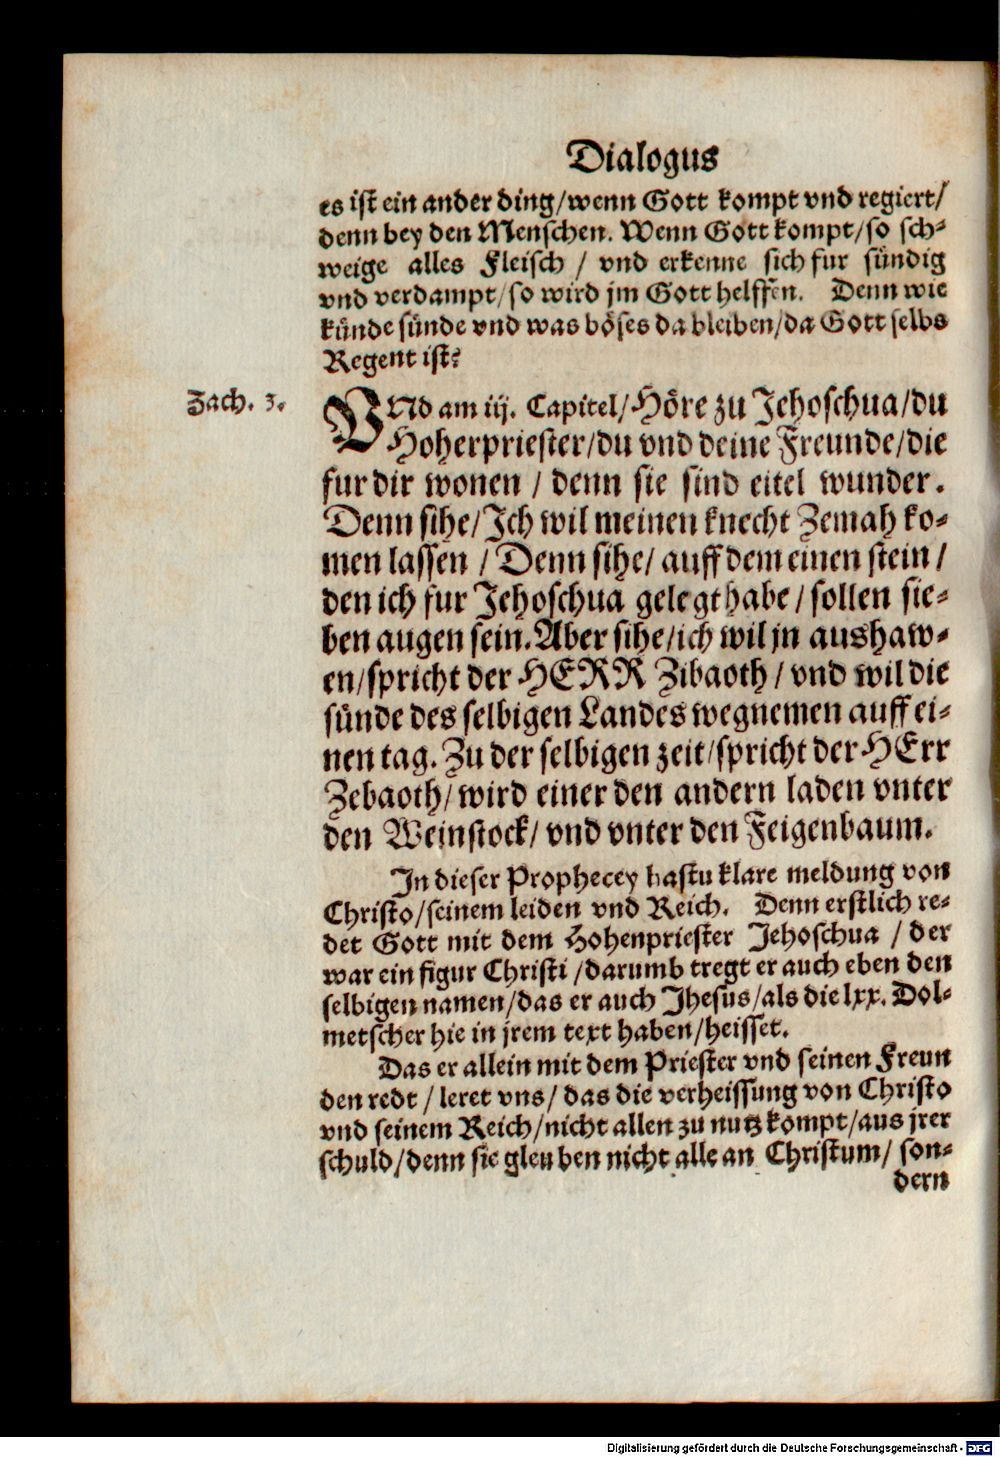 Dialogus
es ist ein ander ding/wenn Gott kompt vnd regiert/
denn bey den Menschen. Wenn Gott kompt/so sch-
weige alles Fleisch / vnd erkenne sich fur sündig
vnd verdampt/so wird jm Gott helffen. Denn wie
künde sünde vnd was böses da bleiben/da Gott selbs
Regent ist?
Zach. 3.
VNd am iij. Capitel/Höre zu Jehoschua/du
Hoherpriester/du vnd deine Freunde/die
fur dir wonen / denn sie sind eitel wunder.
Denn sihe/Ich wil meinen knecht Zemah ko-
men lassen /Denn sihe/ auff dem einen stein /
den ich fur Jehoschua gelegt habe/sollen sie-
ben augen sein. Aber sihe/ich wil jn aushaw-
en/spricht der HERR Zibaoth / vnd wil die
sünde des selbigen Landes wegnemen auff ei-
nen tag. Zu der selbigen zeit/spricht der HErr
Zebaoth/wird einer den andern laden vnter
den Weinstock/ vnd vnter den Feigenbaum.
In dieser Prophecey hastu klare meldung von
Christo/seinem leiden vnd Reich. Denn erstlich re-
det Gott mit dem Hohenpriester Jehoschua / der
war ein figur Christi /darumb tregt er auch eben den
selbigen namen/das er auch Jhesus/als die lxx. Dol-
metscher hie in jrem text haben/heisset.
Das er allein mit dem Priester vnd seinen Freun
den redt / leret vns/ das die verheissung von Christo
vnd seinem Reich/nicht allen zu nutz kompt/aus jrer
schuld/denn sie gleuben nicht alle an Christum/ son-
dern
Digitalisierung gefördert durch die Deutsche Forschungsgemeinschaft - DFG